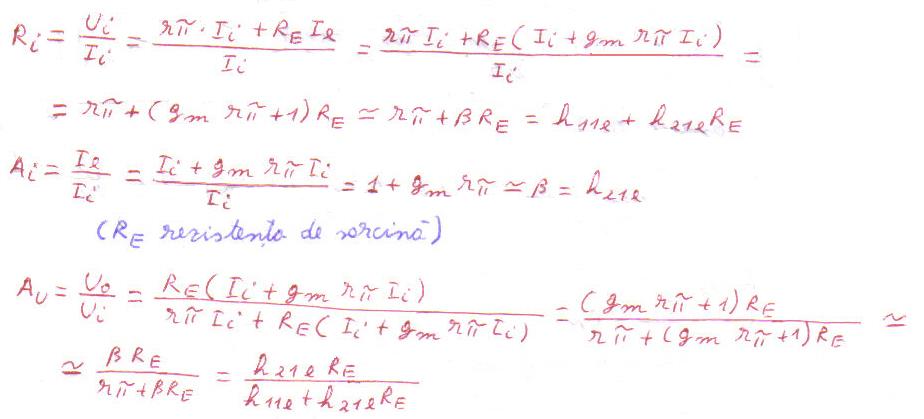 Ri = Ui/Ii = (rπ · Ii + RE Ie)/Ii = (rπ Ii + RE(Ii + gm rπ Ii))/Ii =
= rπ + (gm rπ + 1)RE ≃ rπ + βRE = h11e + h21e RE
Ai = Ie/Ii = (Ii + gm rπ Ii)/Ii = 1 + gm rπ ≃ β = h21e
(RE rezistența de sarcină)
AU = Uo/Ui = RE(Ii + gm rπ Ii)/(rπ Ii + RE(Ii + gm rπ Ii)) = (gm rπ + 1)RE/(rπ + (gm rπ + 1)RE) ≃
≃ βRE/(rπ + βRE) = h21e RE/(h11e + h21e RE)